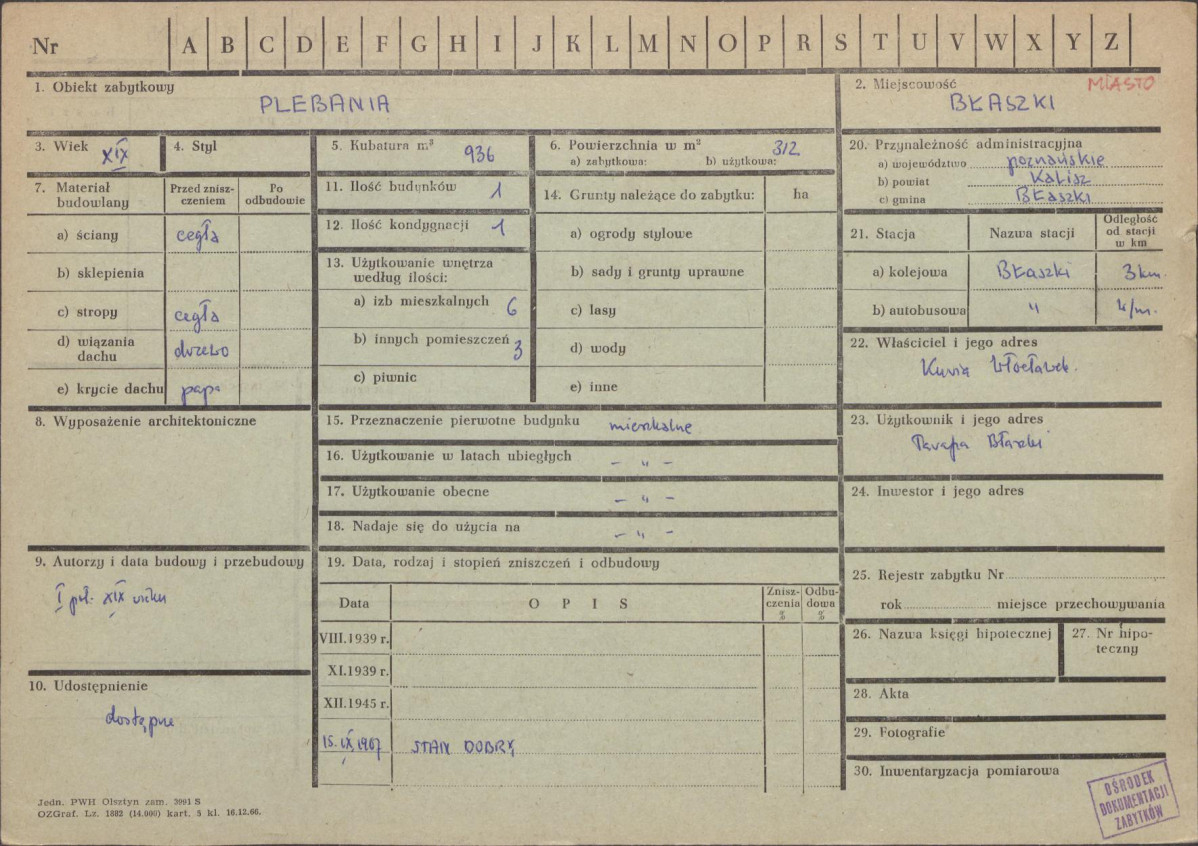 Nr A B C D E F G H I J K L M N O P R S T U V W X Y Z
1. Obiekt zabytkowy
PLEBANIA
2. Miejscowość
MIASTO
BŁASZKI
3. Wiek XIX
4. Styl
5. Kubatura m³ 936
6. Powierzchnia w m² 312
a) zabytkowa: b) użytkowa:
7. Materiał budowlany
Przed zniszczeniem
Po odbudowie
a) ściany cegła
b) sklepienia
c) stropy cegła
d) wiązania dachu drzewo
e) krycie dachu papa
8. Wyposażenie architektoniczne
9. Autorzy i data budowy i przebudowy
I poł. XIX wieku
10. Udostępnienie
dostępne
11. Ilość budynków 1
12. Ilość kondygnacji 1
13. Użytkowanie wnętrza
według ilości:
a) izb mieszkalnych 6
b) innych pomieszczeń 3
c) piwnic
14. Grunty należące do zabytku: ha
a) ogrody stylowe
b) sady i grunty uprawne
c) lasy
d) wody
e) inne
15. Przeznaczenie pierwotne budynku mieszkalne
16. Użytkowanie w latach ubiegłych – „ –
17. Użytkowanie obecne – „ –
18. Nadaje się do użycia na – „ –
19. Data, rodzaj i stopień zniszczeń i odbudowy
Data OPIS Zniszczenia % Odbudowa %
VIII.1939 r.
XI.1939 r.
XII.1945 r.
15. IX, 1967 STAN DOBRY
20. Przynależność administracyjna
a) województwo poznańskie
b) powiat Kalisz
c) gmina BŁaszki
21. Stacja Nazwa stacji Odległość od stacji w km
a) kolejowa BŁaszki 3 km.
b) autobusowa „
22. Właściciel i jego adres
Kuria Włocławek.
23. Użytkownik i jego adres
Parafia Błaszki
24. Inwestor i jego adres
25. Rejestr zabytku Nr
rok miejsce przechowywania
26. Nazwa księgi hipotecznej
27. Nr hipoteczny
28. Akta
29. Fotografie
30. Inwentaryzacja pomiarowa
OŚRODEK
DOKUMENTACJI
ZABYTKÓW
Jedn. PWH Olsztyn zam. 3991 S
OZGraf. Lz. 1882 (14.000) kart. 5 kl. 16.12.66.